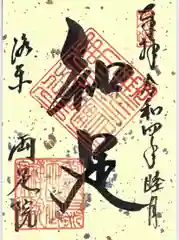 奉拝 令和四年睦月
知足
洛東
両足院